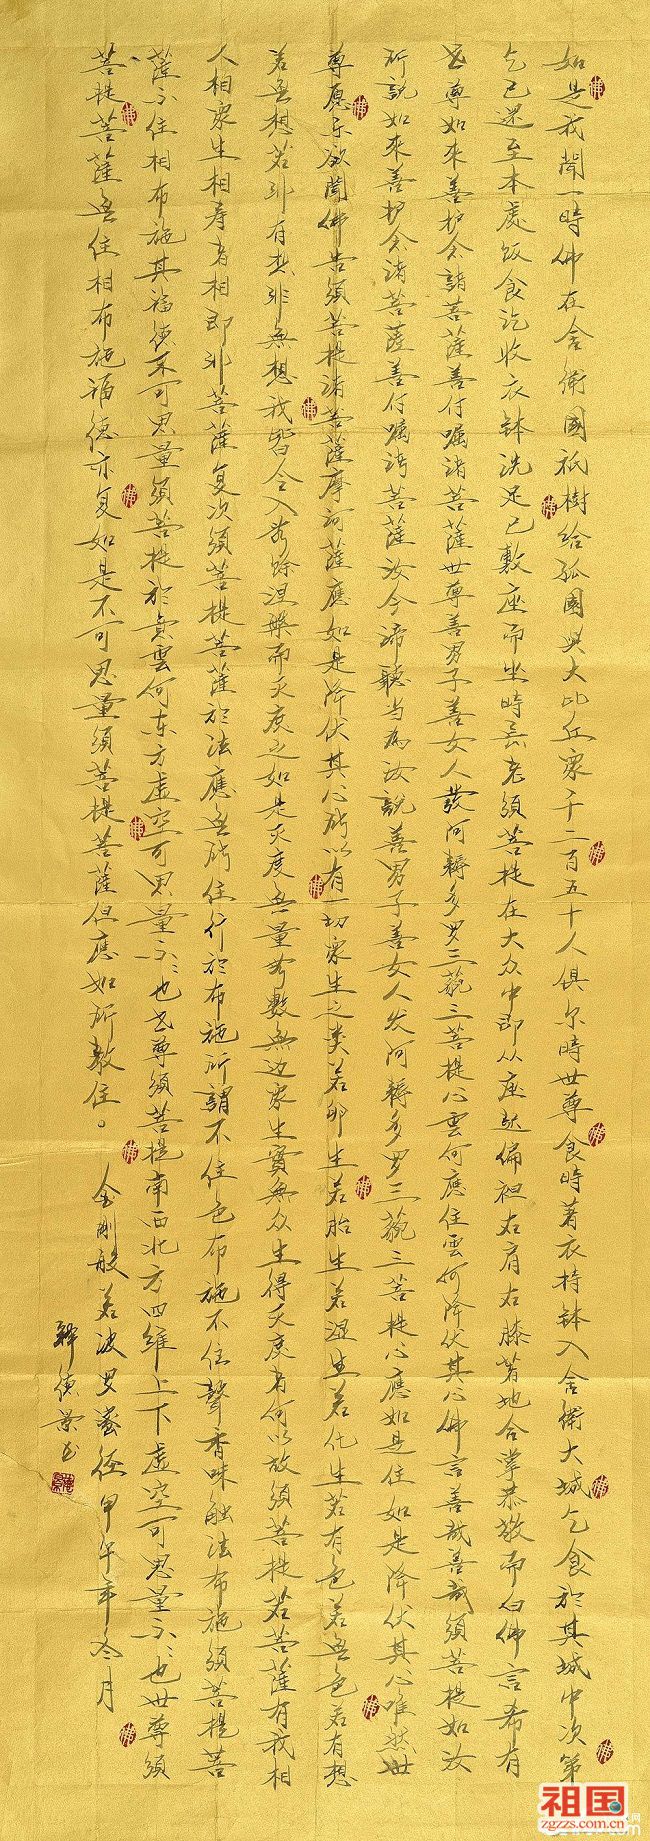 如是我聞一時佛在舍衛國祇樹給孤園與大比丘眾千二百五十人俱尔時世尊食時著衣持缽入舍衛大城乞食於其城中次第
乞已還至本處饭食訖收衣缽洗足已敷座而坐時長老須菩提在大众中即从座起偏袒右肩右膝著地合掌恭敬而白佛言希有
世尊如来善护念諸菩薩善付嘱諸菩薩世尊善男子善女人發阿耨多罗三藐三菩提心雲何應住雲何降伏其心佛言善哉善哉須菩提如汝
所說如来善护念諸菩薩善付嘱諸菩薩汝今諦聽当為汝說善男子善女人发阿耨多罗三藐三菩提心應如是住如是降伏其心唯然世
尊愿乐欲聞佛告須菩提諸菩薩摩訶薩應如是降伏其心所以有一切眾生之类若卵生若胎生若湿生若化生若有色若無色若有想
若無想若非有想非無想我皆令入無餘涅槃而灭度之如是灭度無量無數無边眾生實無众生得灭度者何以故須菩提若菩薩有我相
人相眾生相寿者相即非菩薩复次須菩提菩薩於法應無所住行於布施所謂不住色布施不住聲香味触法布施須菩提菩
薩不住相布施其福德不可思量須菩提於意雲何东方虚空可思量不不也世尊須菩提南西北方四維上下虚空可思量不不也世尊須
菩提菩薩無住相布施福德亦复如是不可思量須菩提菩薩但應如所教住。
金剛般若波罗蜜经甲午年冬月
德景书
佛
祖国
zgzzs.com.cn